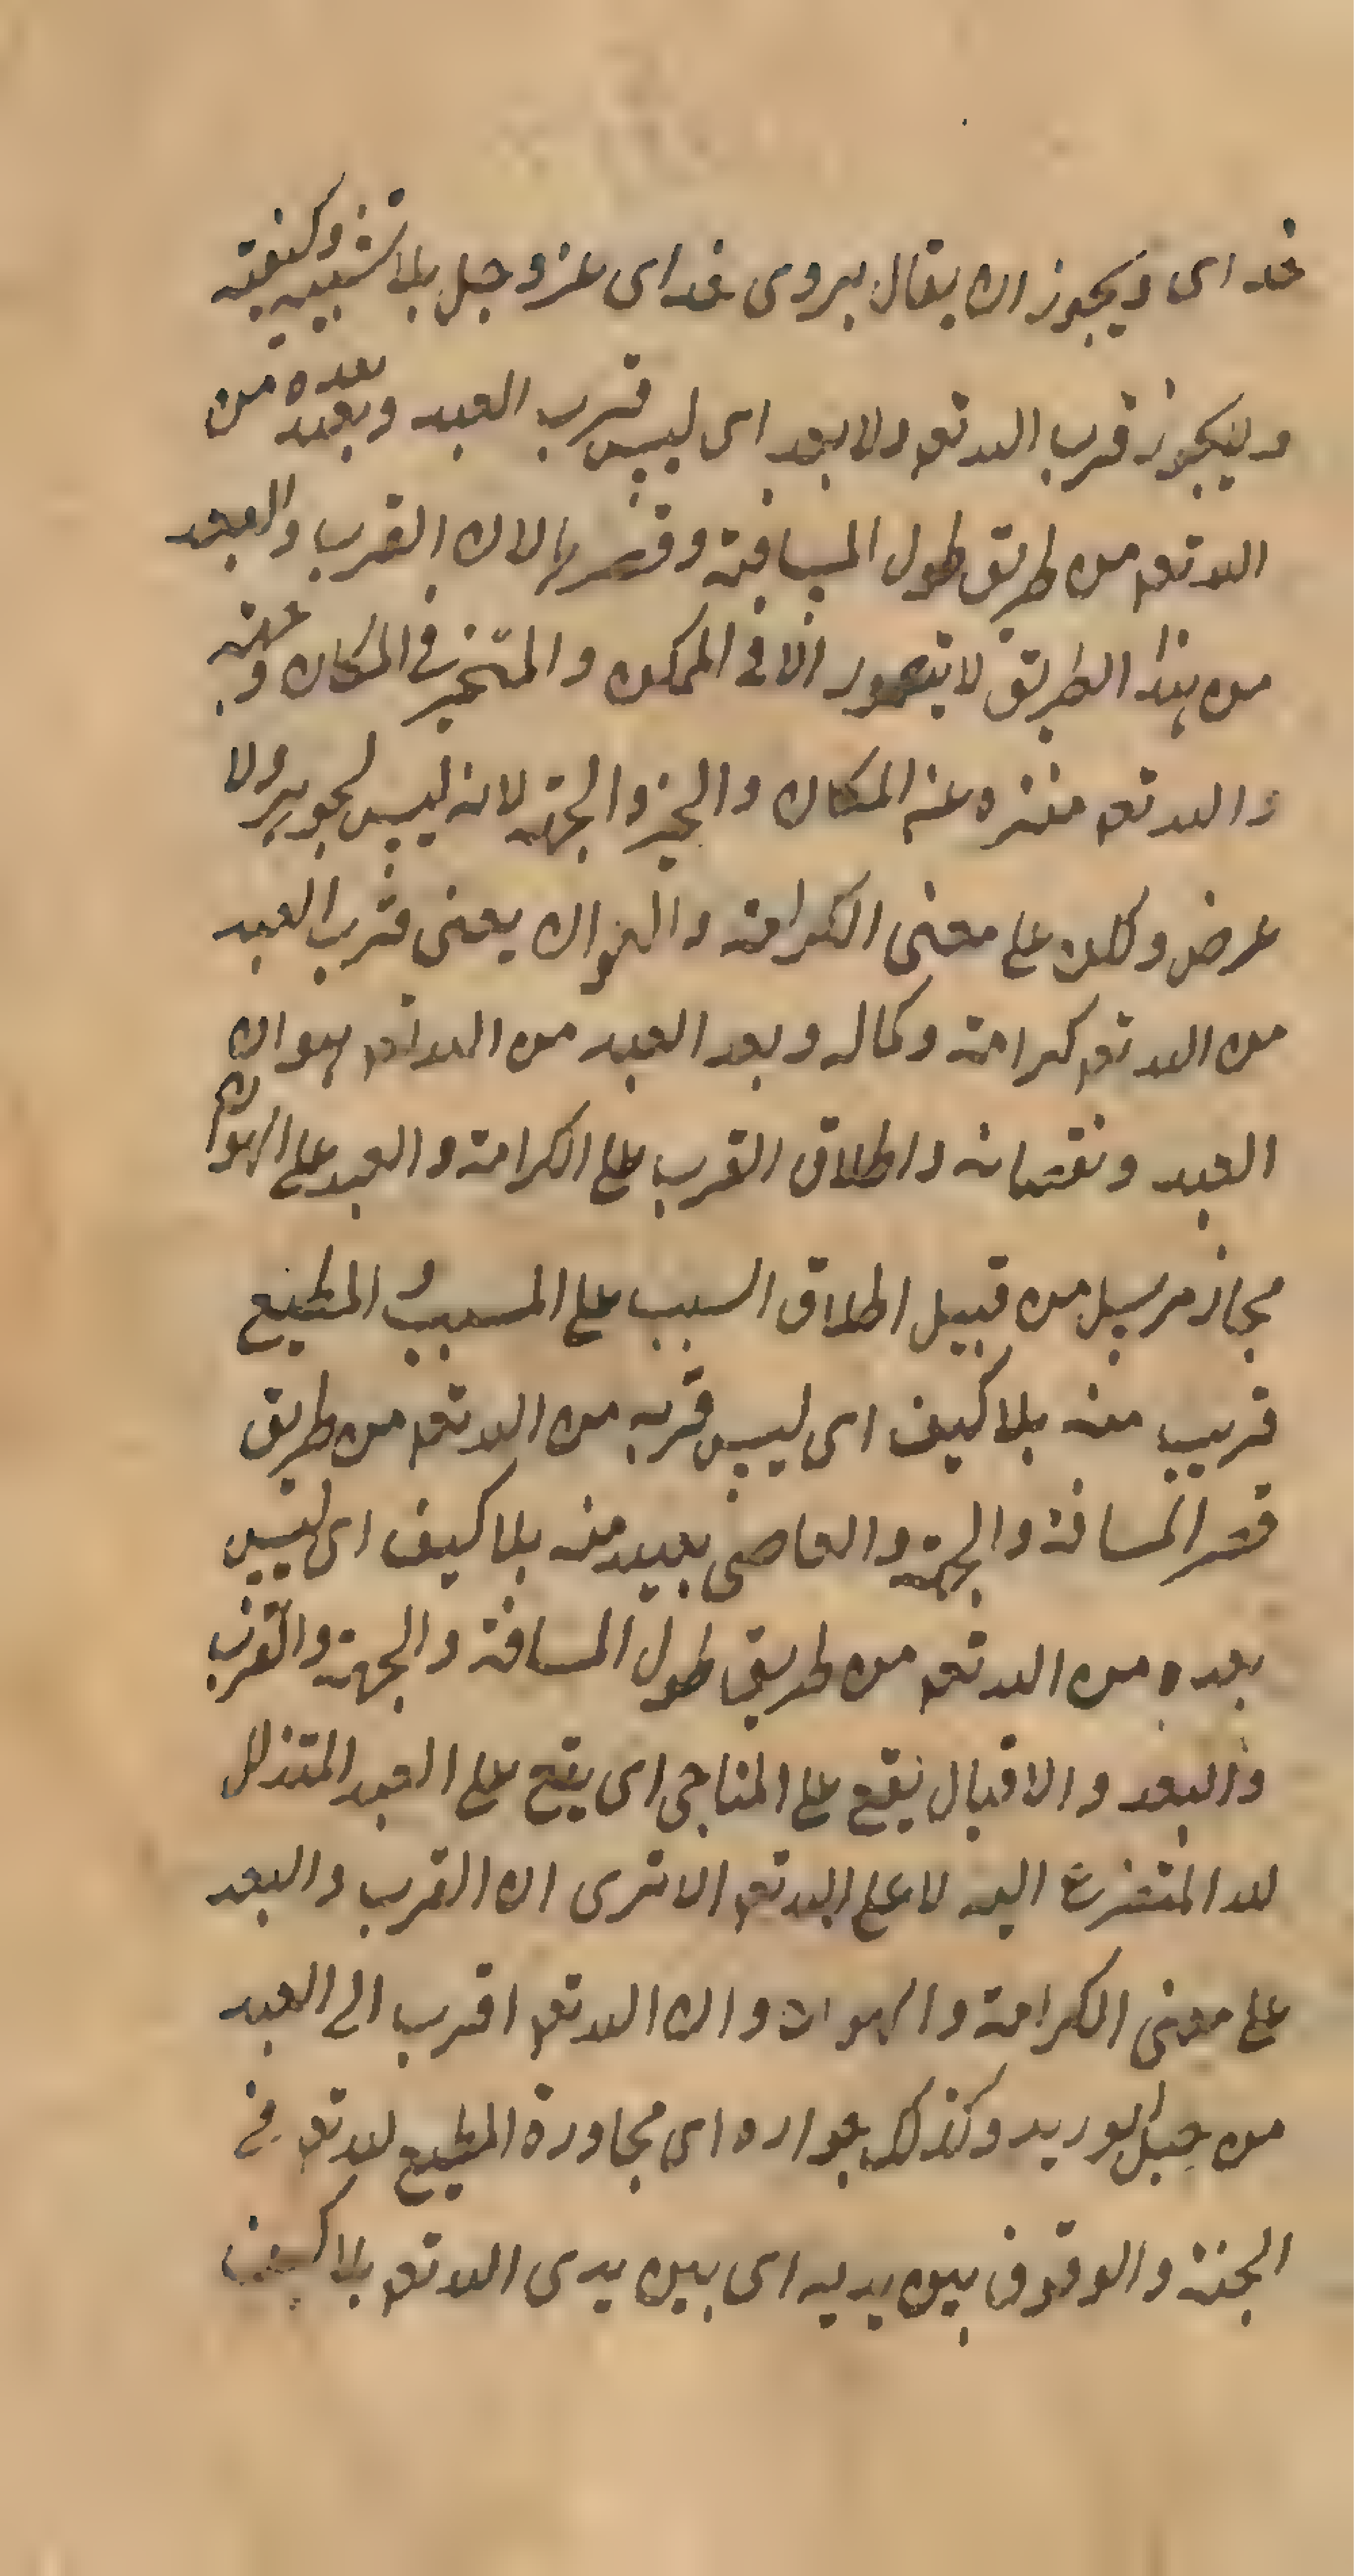 خدای ويجوز ان يقال بروی خدای عز و جل بلا تشبيه وكيفية
وليجوز قرب الله تعم ولا بعد ای ليس قرب العبد وبعده من
الله تعم من طريق طول المسافة وقصرها لان القرب والبعد
من هذا الطريق لا يتصور الا فی الممكن والمتحيز فی المكان وجهة
والله تعم منزه عن المكان والحيز والجهة لانه ليس لجوهر ولا
عرض وكان علی معنی الكرامة والهوان يعنی قرب العبد
من الله تعم كرامة وكماله وبعد العبد من الله تعم هوان
العبد ونقصانه واطلاق القرب علی الكرامة والعبد علی الهوان
مجاز مرسل من قبيل اطلاق السبب علی المسبب و المطيع
قريب منه بلا كيف ای ليس قربه من الله تعم من طريق
قصر المسافة والجهة والعاصی بعيد منه بلا كيف ای ليس
بعده من الله تعم من طريق طول المسافة والجهة والقرب
والبعد والاقبال يقع علی المناجی ای يقع علی العبد المتذلل
لله المتضرع اليه لا علی الله تعم الا تری ان القرب والبعد
علی معنی الكرامة والهوان وان الله تعم اقرب الی العبد
من حبل الوريد وكذلك جواره ای مجاورة المطيع لله تعم فی
الجنة والوقوف بين يديه ای بين يدی الله تعم بلا كيف